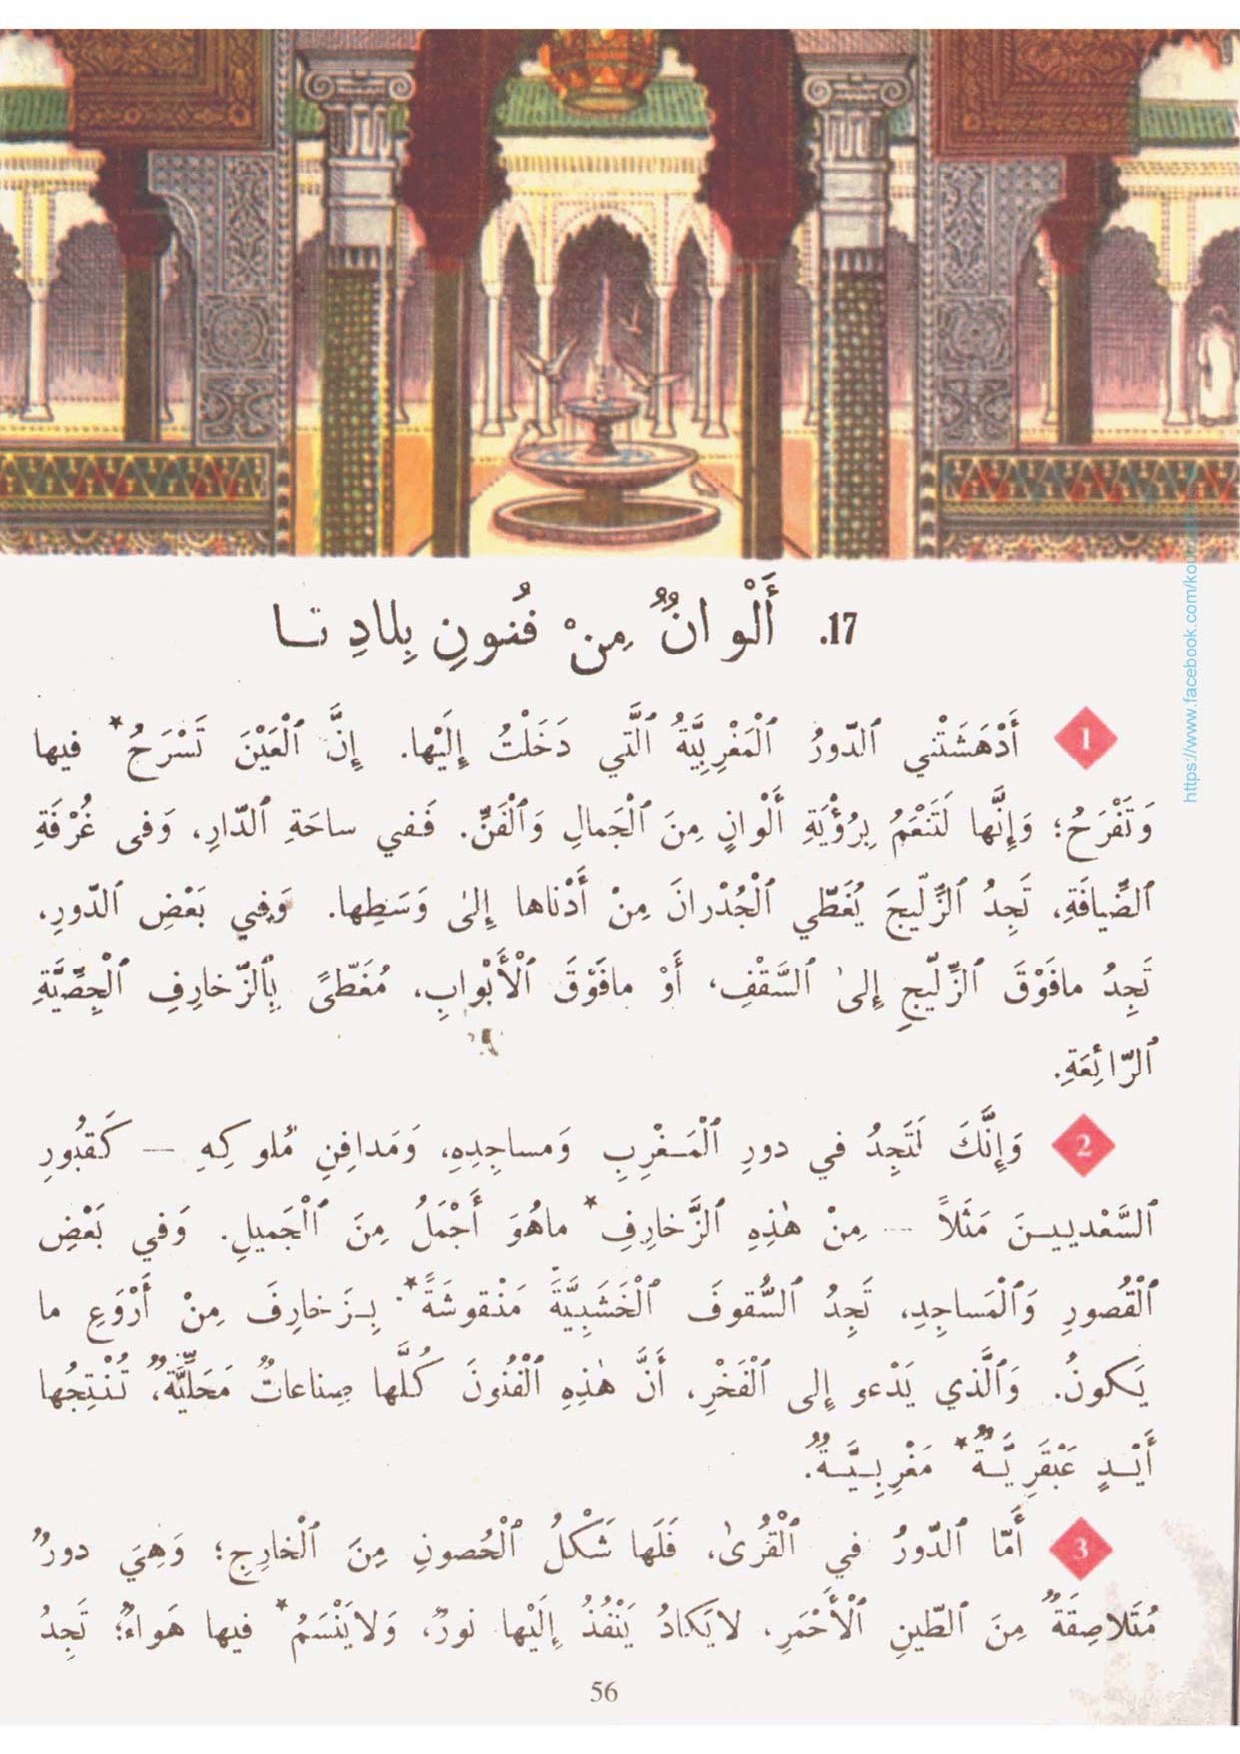 17. أَلْوانٌ مِنْ فُنونِ بِلادِنا
1 أَدْهَشَتْني ٱلدّورُ ٱلْمَغْرِبِيَّةُ ٱلَّتي دَخَلْتُ إِلَيْها. إِنَّ ٱلْعَيْنَ تَسْرَحُ* فيها
وَتَفْرَحُ؛ وَإِنَّها لَتَنْعَمُ بِرُؤْيَةِ أَلْوانٍ مِنَ ٱلْجَمالِ وَٱلْفَنِّ. فَفي ساحَةِ ٱلدّارِ، وَفى غُرْفَةِ
ٱلضِّيافَةِ، تَجِدُ ٱلزِّلّيجَ يُغَطّي ٱلْجُدْرانَ مِنْ أَدْناها إِلىٰ وَسَطِها. وَفي بَعْضِ ٱلدّورِ،
تَجِدُ مافَوْقَ ٱلزِّلّيجِ إِلىٰ ٱلسَّقْفِ، أَوْ مافَوْقَ ٱلْأَبْوابِ، مُغَطّىً بِٱلزَّخارِفِ ٱلْجِصِّيَّةِ
ٱلرّائِعَةِ.
2 وَإِنَّكَ لَتَجِدُ في دورِ ٱلْمَغْرِبِ وَمساجِدِهِ، وَمَدافِنِ مُلوكِهِ — كَقُبُورِ
ٱلسَّعْدييـنَ مَثَلاً — مِنْ هٰذِهِ ٱلزَّخارِفِ* ماهُوَ أَجْمَلُ مِنَ ٱلْجَميلِ. وَفي بَعْضِ
ٱلْقُصورِ وَٱلْمَساجِدِ، تَجِدُ ٱلسُّقوفَ ٱلْخَشَبِيَّةَ مَنْقوشَةً* بِـزَخارِفَ مِنْ أَرْوَعِ ما
يَكونُ. وَٱلَّذي يَدْعو إِلى ٱلْفَخْرِ، أَنَّ هٰذِهِ ٱلْفُنونَ كُلَّها صِناعاتٌ مَحَلِّيَّةٌ، تُنْتِجُها
أَيْـدٍ عَبْقَرِيَّـةٌ* مَغْرِبِـيَّـةٌ.
3 أَمّا ٱلدّورُ في ٱلْقُرىٰ، فَلَها شَكْلُ ٱلْحُصونِ مِنَ ٱلْخارِجِ؛ وَهِيَ دورٌ
مُتَلاصِقَةٌ مِنَ ٱلطّينِ ٱلْأَحْمَرِ، لايَكادُ يَنْفُذُ إِلَيْها نورٌ، وَلايَنْسَمُ* فيها هَواءٌ؛ تَجِدُ
56